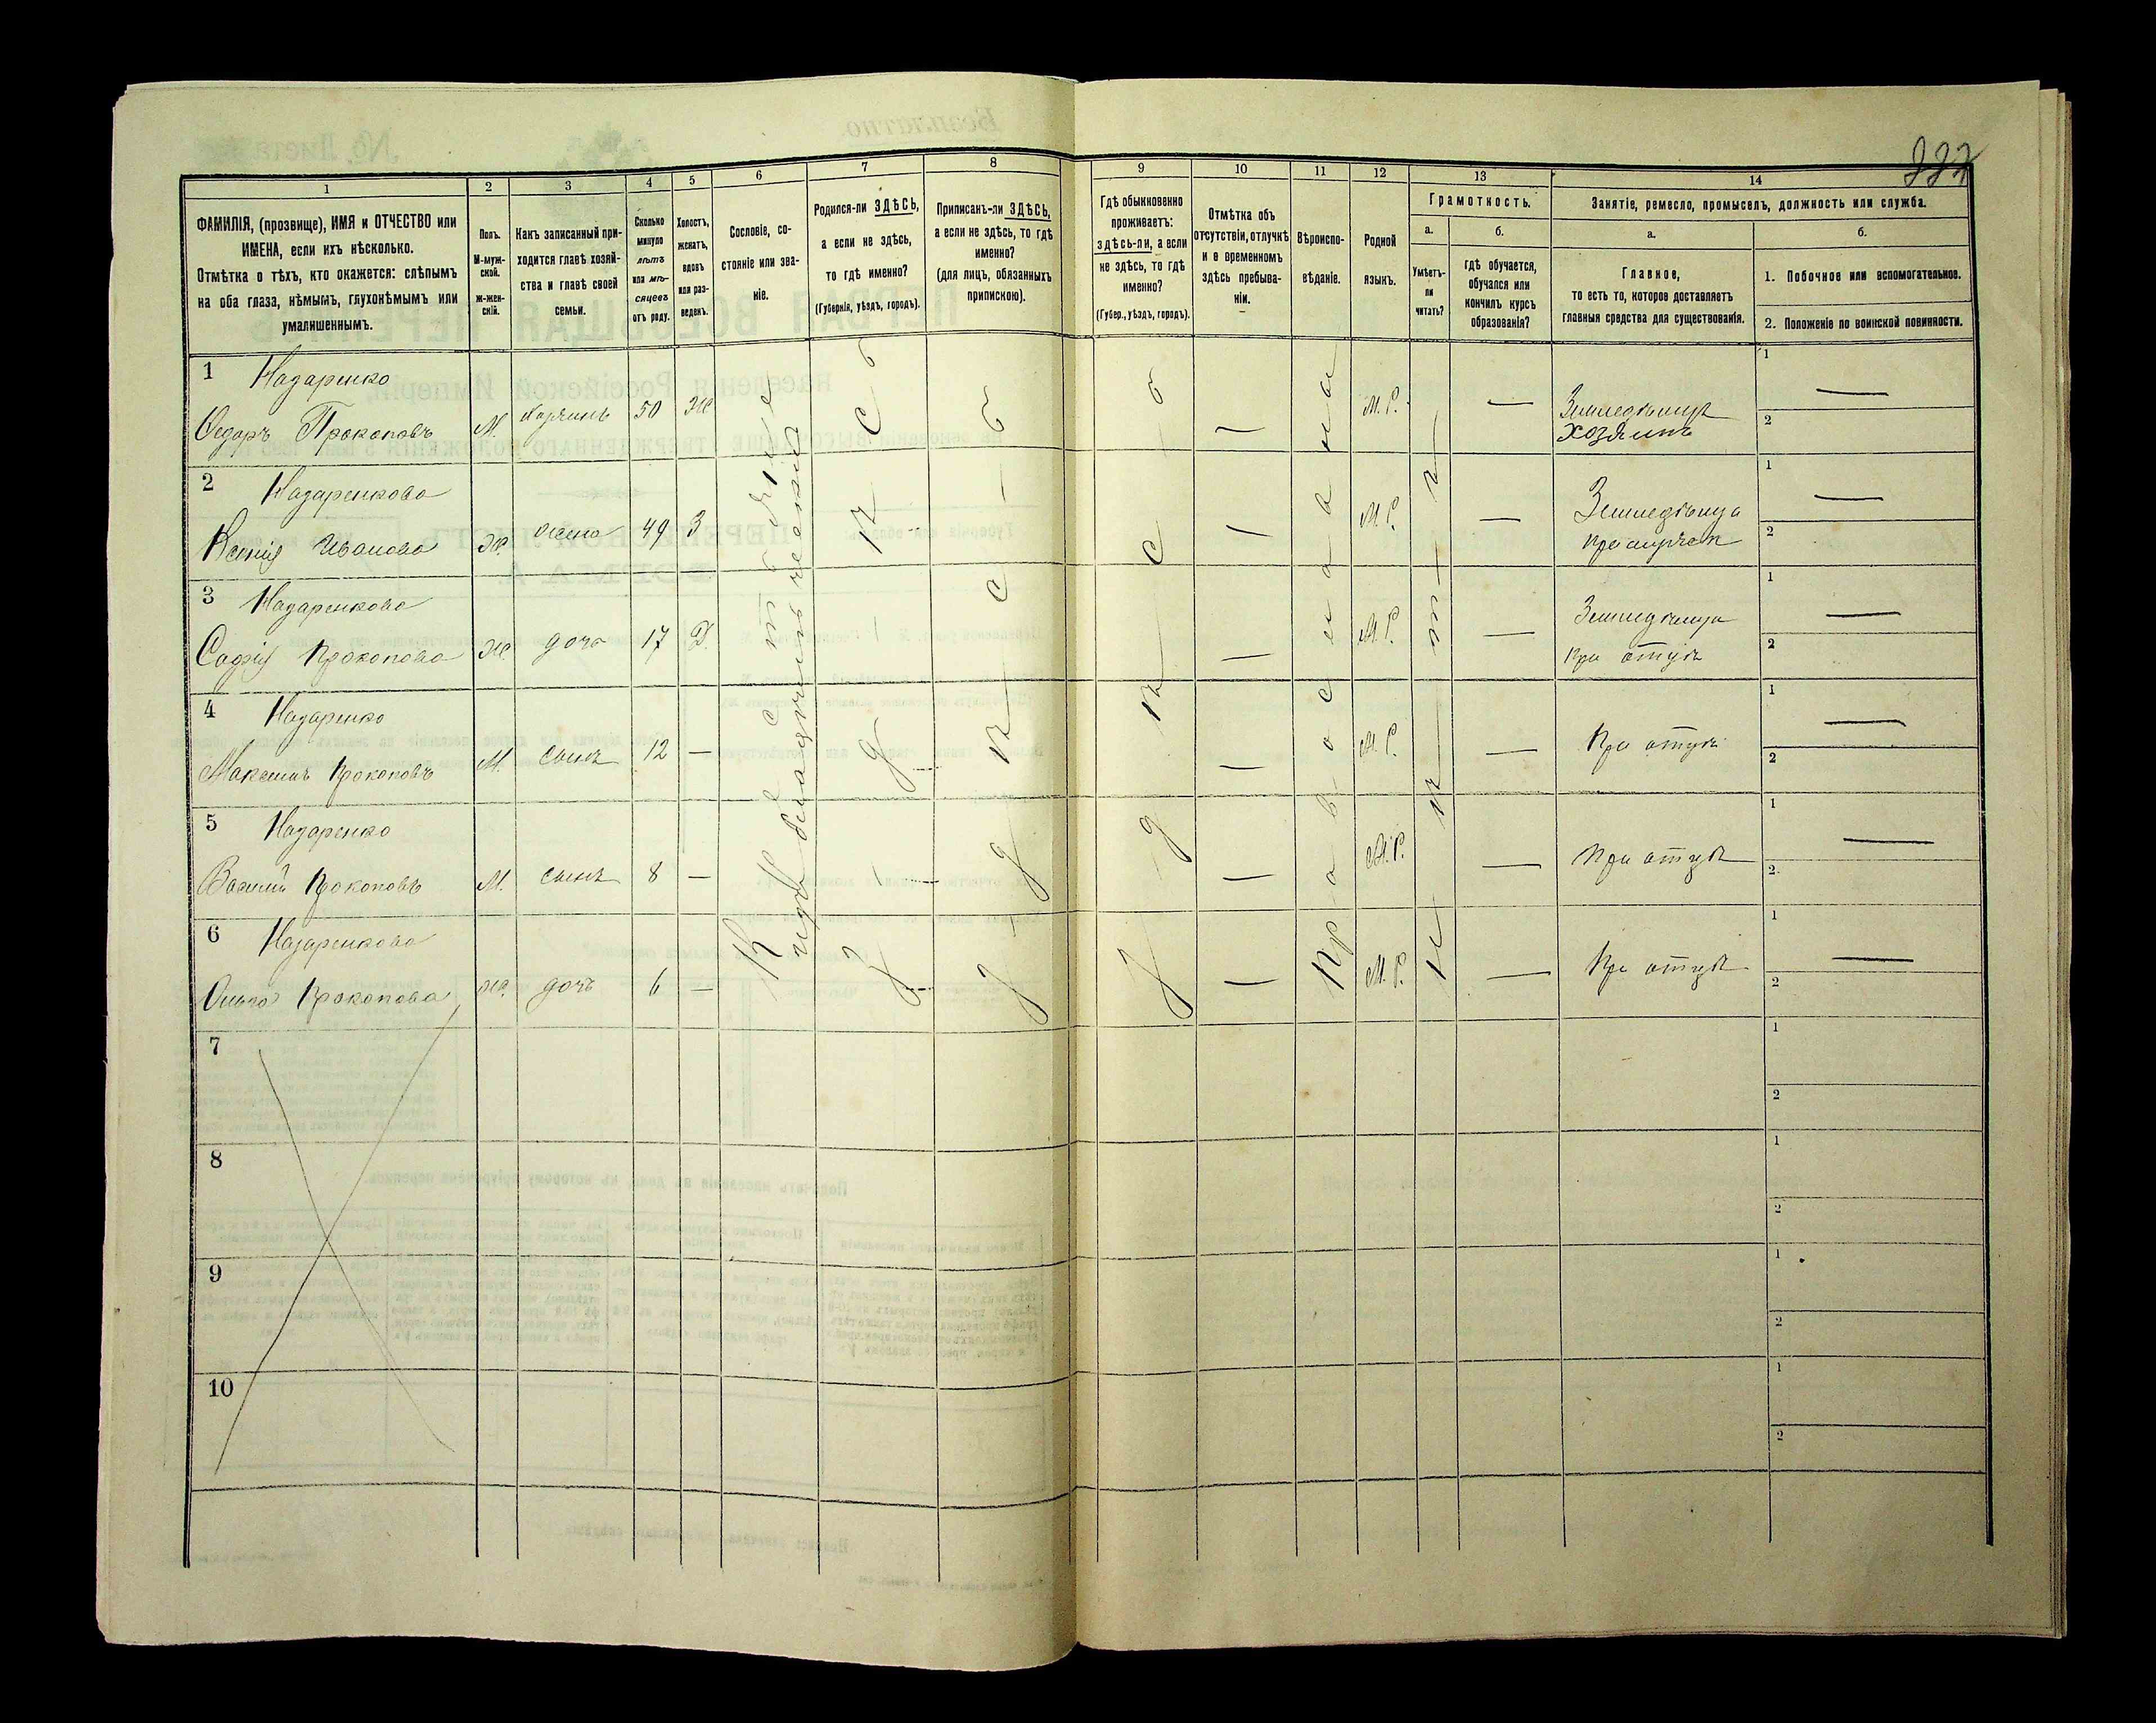 337
1 2 3 4 5 6 7 8 9 10 11 12 13 14
ФАМИЛІЯ, (прозвище), ИМЯ и ОТЧЕСТВО или
ИМЕНА, если ихъ нѣсколько.
Отмѣтка о тѣхъ, кто окажется: слѣпымъ
на оба глаза, нѣмымъ, глухонѣмымъ или
умалишеннымъ.
Полъ.
М-муж-
ской.
ж-жен-
скій.
Какъ записанный при-
ходится главѣ хозяй-
ства и главѣ своей
семьи.
Сколько
минуло
лѣтъ
или мѣ-
сяцевъ
отъ роду.
Холостъ,
женатъ,
вдовъ
или раз-
веденъ.
Сословіе, со-
стояніе или зва-
ніе.
Родился-ли ЗДѢСЬ,
а если не здѣсь,
то гдѣ именно?
(Губернія, уѣздъ, городъ).
Приписанъ-ли ЗДѢСЬ,
а если не здѣсь, то гдѣ
именно?
(для лицъ, обязанныхъ
припискою).
Гдѣ обыкновенно
проживаетъ:
здѣсь-ли, а если
не здѣсь, то гдѣ
именно?
(Губер., уѣздъ, городъ).
Отмѣтка объ
отсутствіи, отлучкѣ
и о временномъ
здѣсь пребыва-
ніи.
Вѣроиспо-
вѣданіе.
Родной
языкъ.
Грамотность.
а.
Умѣетъ-
ли
читать?
б.
гдѣ обучается,
обучался или
кончилъ курсъ
образованія?
Занятіе, ремесло, промыселъ, должность или служба.
а.
Главное,
то есть то, которое доставляетъ
главныя средства для существованія.
б.
1. Побочное или вспомогательное.
2. Положеніе по воинской повинности.
1 Назаренко
Федоръ Прокоповъ М. хозяинъ 50 Ж М.Р. — Земледѣлецъ
хозяинъ
1 —
2
2 Назаренкова
Ксенія Иванова ж. жена 49 З М.Р. — Земледѣлица
1 —
2
3 Назаренкова
Софія Прокопова ж. дочь 17 Д. М.Р. — Земледѣлица
при отцѣ
1 —
2
4 Назаренко
Максимъ Прокоповъ М. сынъ 12 — М.Р. — При отцѣ
1 —
2
5 Назаренко
Василій Прокоповъ М. сынъ 8 — М.Р. — При отцѣ
1 —
2
6 Назаренкова
Ольга Прокопова ж. дочь 6 — М.Р. — При отцѣ
1 —
2
Крестьяне
здѣсь
здѣсь
здѣсь
Православная
нѣтъ
7
1
2
8
1
2
9
1
2
10
1
2